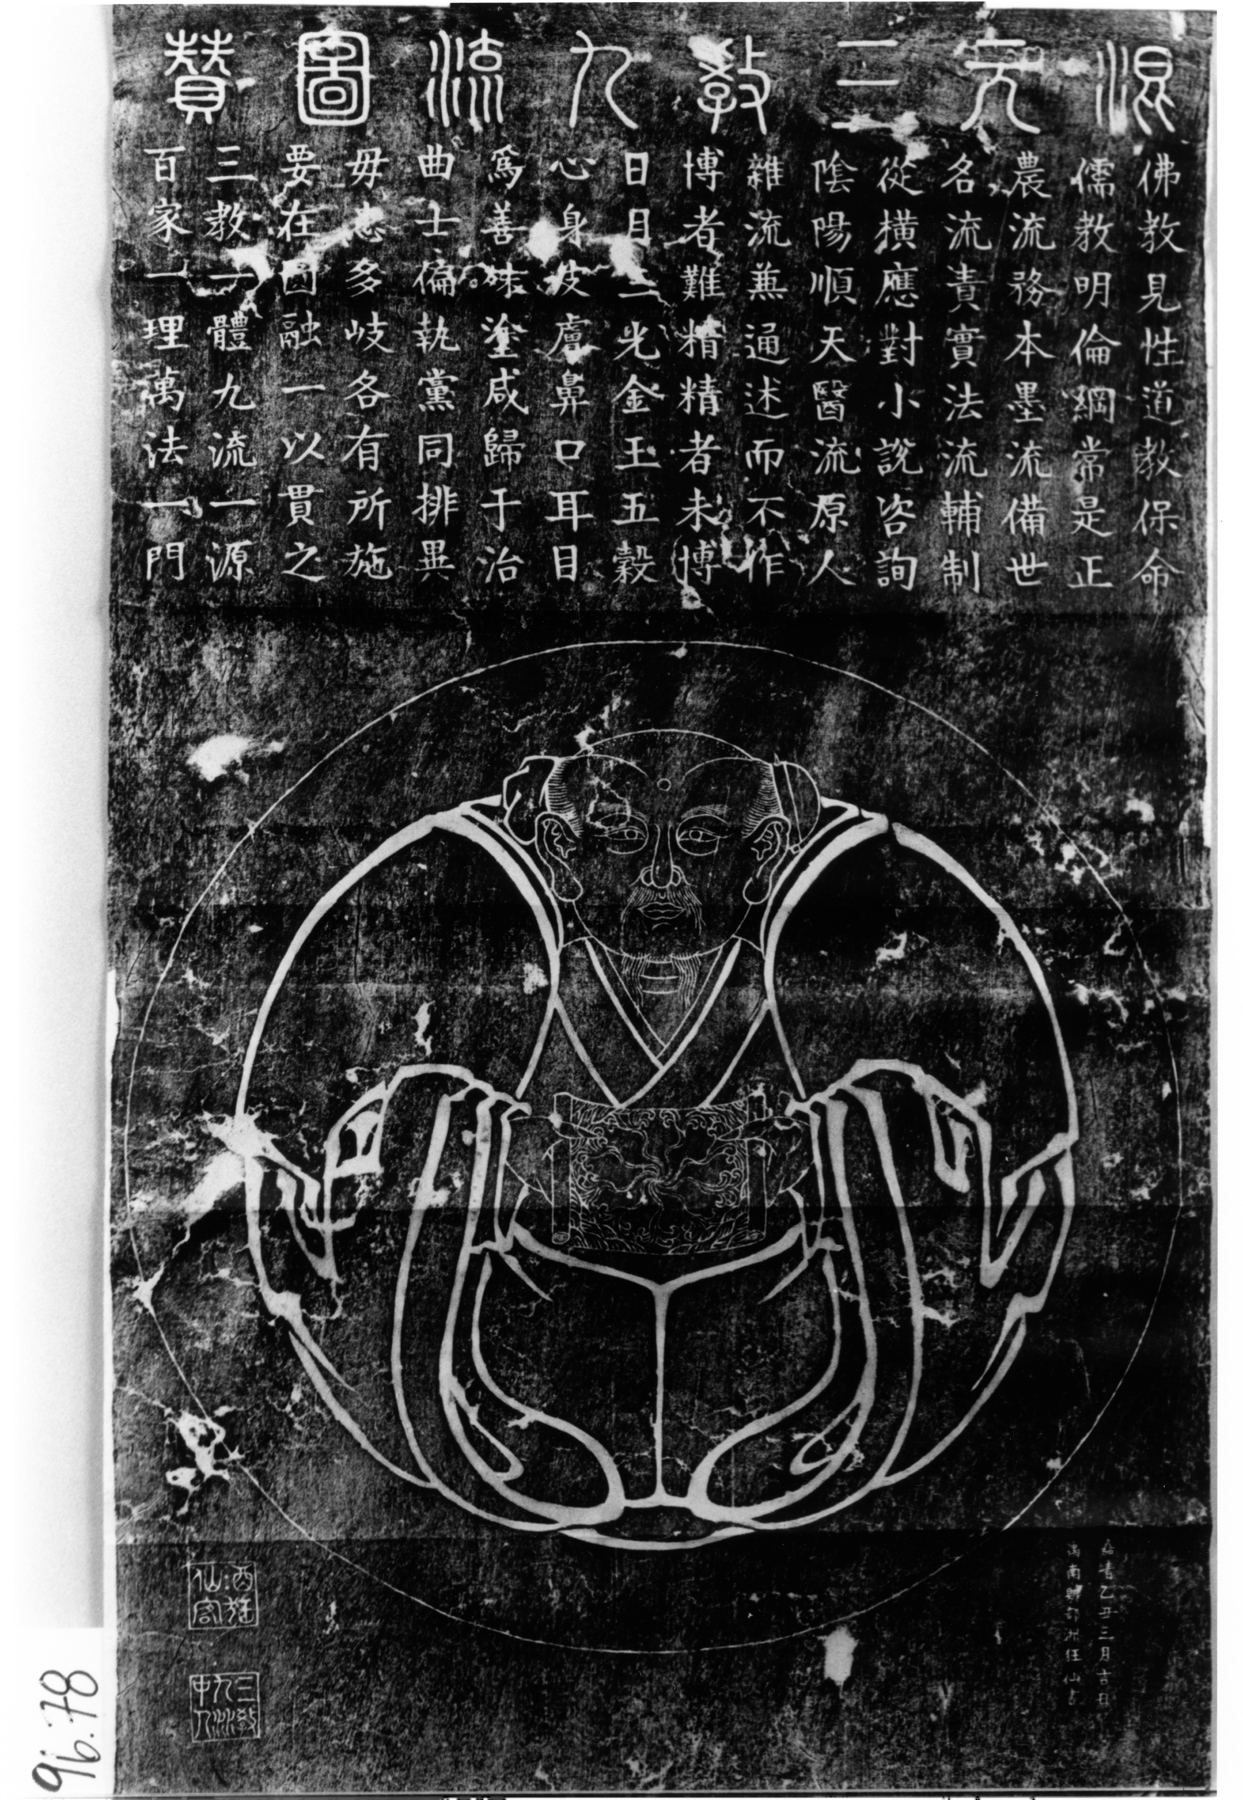 混元三教九流圖贊
佛教見性道教保命
儒教明倫綱常是正
農流務本墨流備世
名流責實法流輔制
從橫應對小說咨詢
陰陽順天醫流原人
雜流兼通述而不作
博者難精精者未博
日月三光金玉五穀
心身皮膚鼻口耳目
為善殊塗咸歸于治
曲士偏執黨同排異
毋患多岐各有所施
要在圓融一以貫之
三教一體九流一源
百家一理萬法一門
嘉靖乙丑三月吉日
三教九流中人
96.78